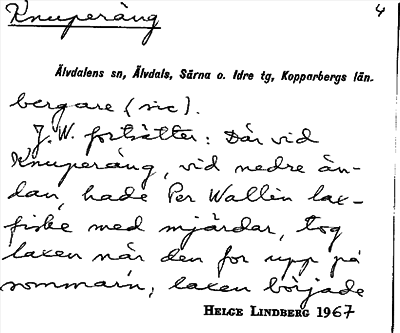 Knuperång 4
Älvdalens sn, Älvdals, Särna o. Idre tg, Kopparbergs län.
bergare (sic).
J.W. fortsätter: Där vid
Knuperång, vid nedre än-
dan, hade Per Wallin lax-
fiske med mjärdar, tog
laxen när den for upp på
sommarn; laxen började
HELGE LINDBERG 1967